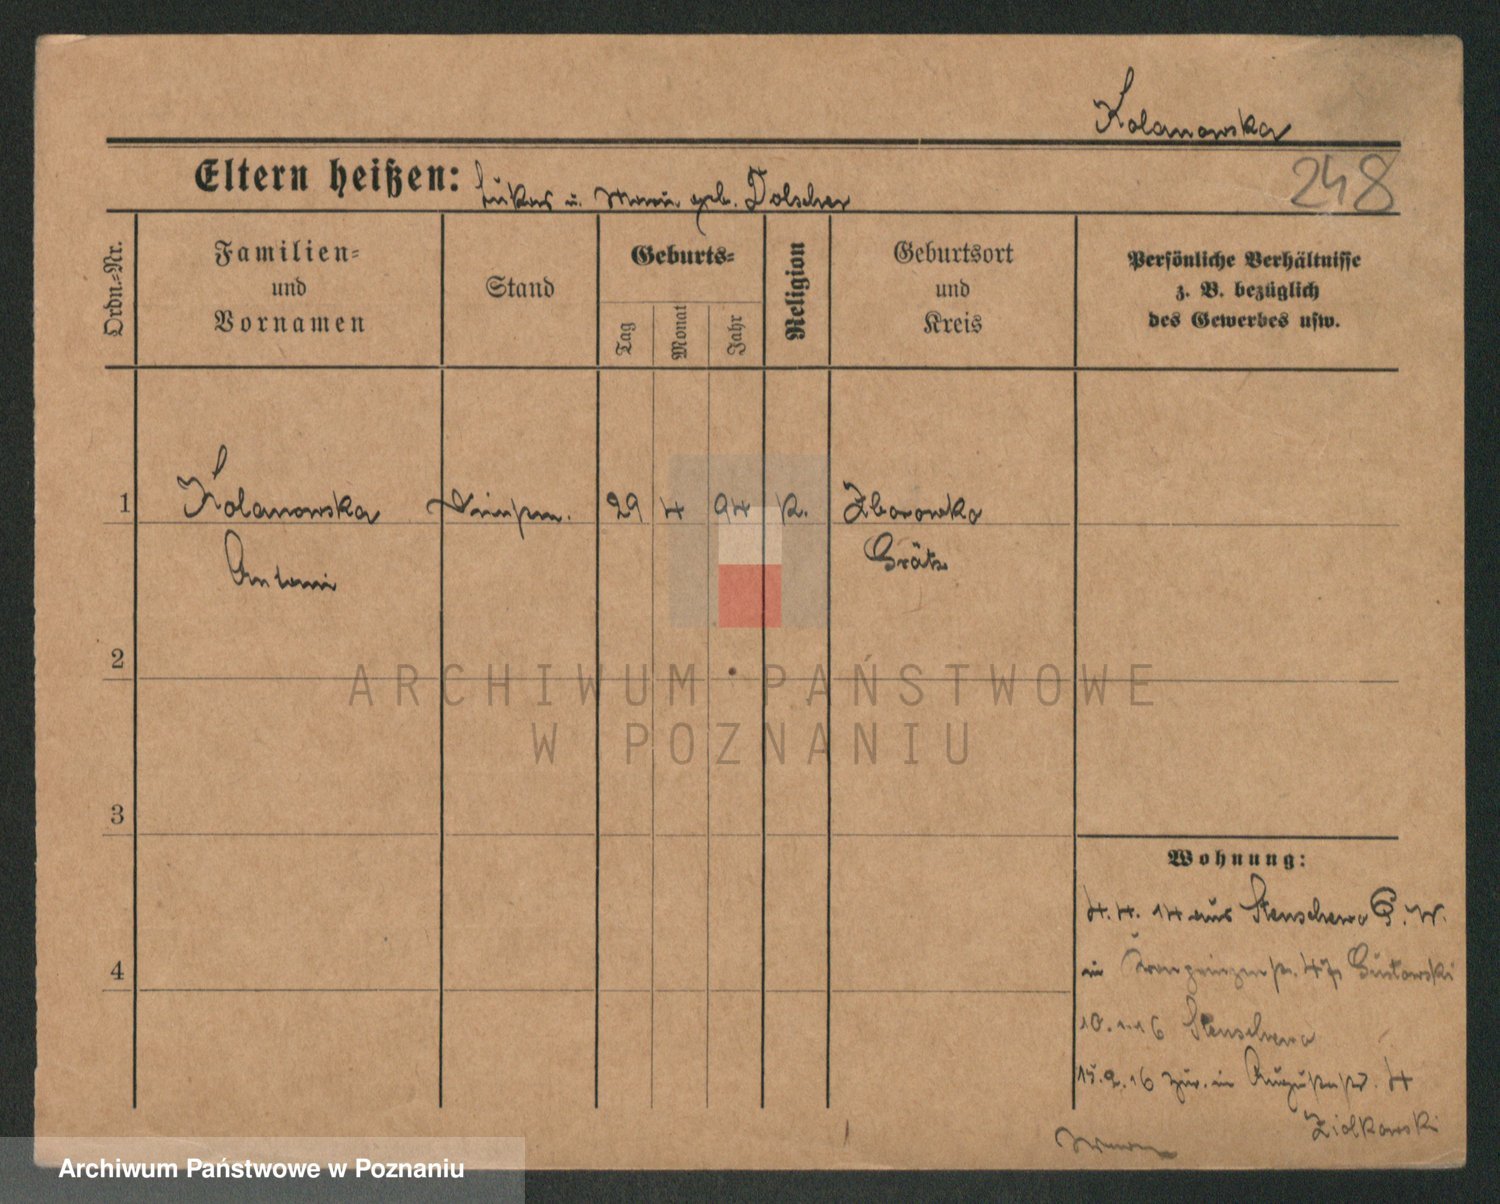 Kolanowska
248
Eltern heißen: Lukas u. Marie geb. Dolscher
Ordn.=Nr.
Familien=
und
Vornamen
Stand
Geburts=
Tag
Monat
Jahr
Religion
Geburtsort
und
Kreis
Persönliche Verhältnisse
z. B. bezüglich
des Gewerbes usw.
1 Kolanowska 29 4 94 k. Zborowko
Antonie Grätz
2
3
4
Wohnung:
4. 4. 14 aus Stenschewo P. W.
in 47 Gustowski
10. 1. 16 Stenschewo
15. 2. 16 zur. in Augustastr. 4
Ziolkowski
ARCHIWUM PAŃSTWOWE
W POZNANIU
Archiwum Państwowe w Poznaniu